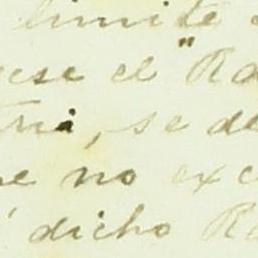 limite
ese el "Ra
tri, se de
e no exce
dicho Ra